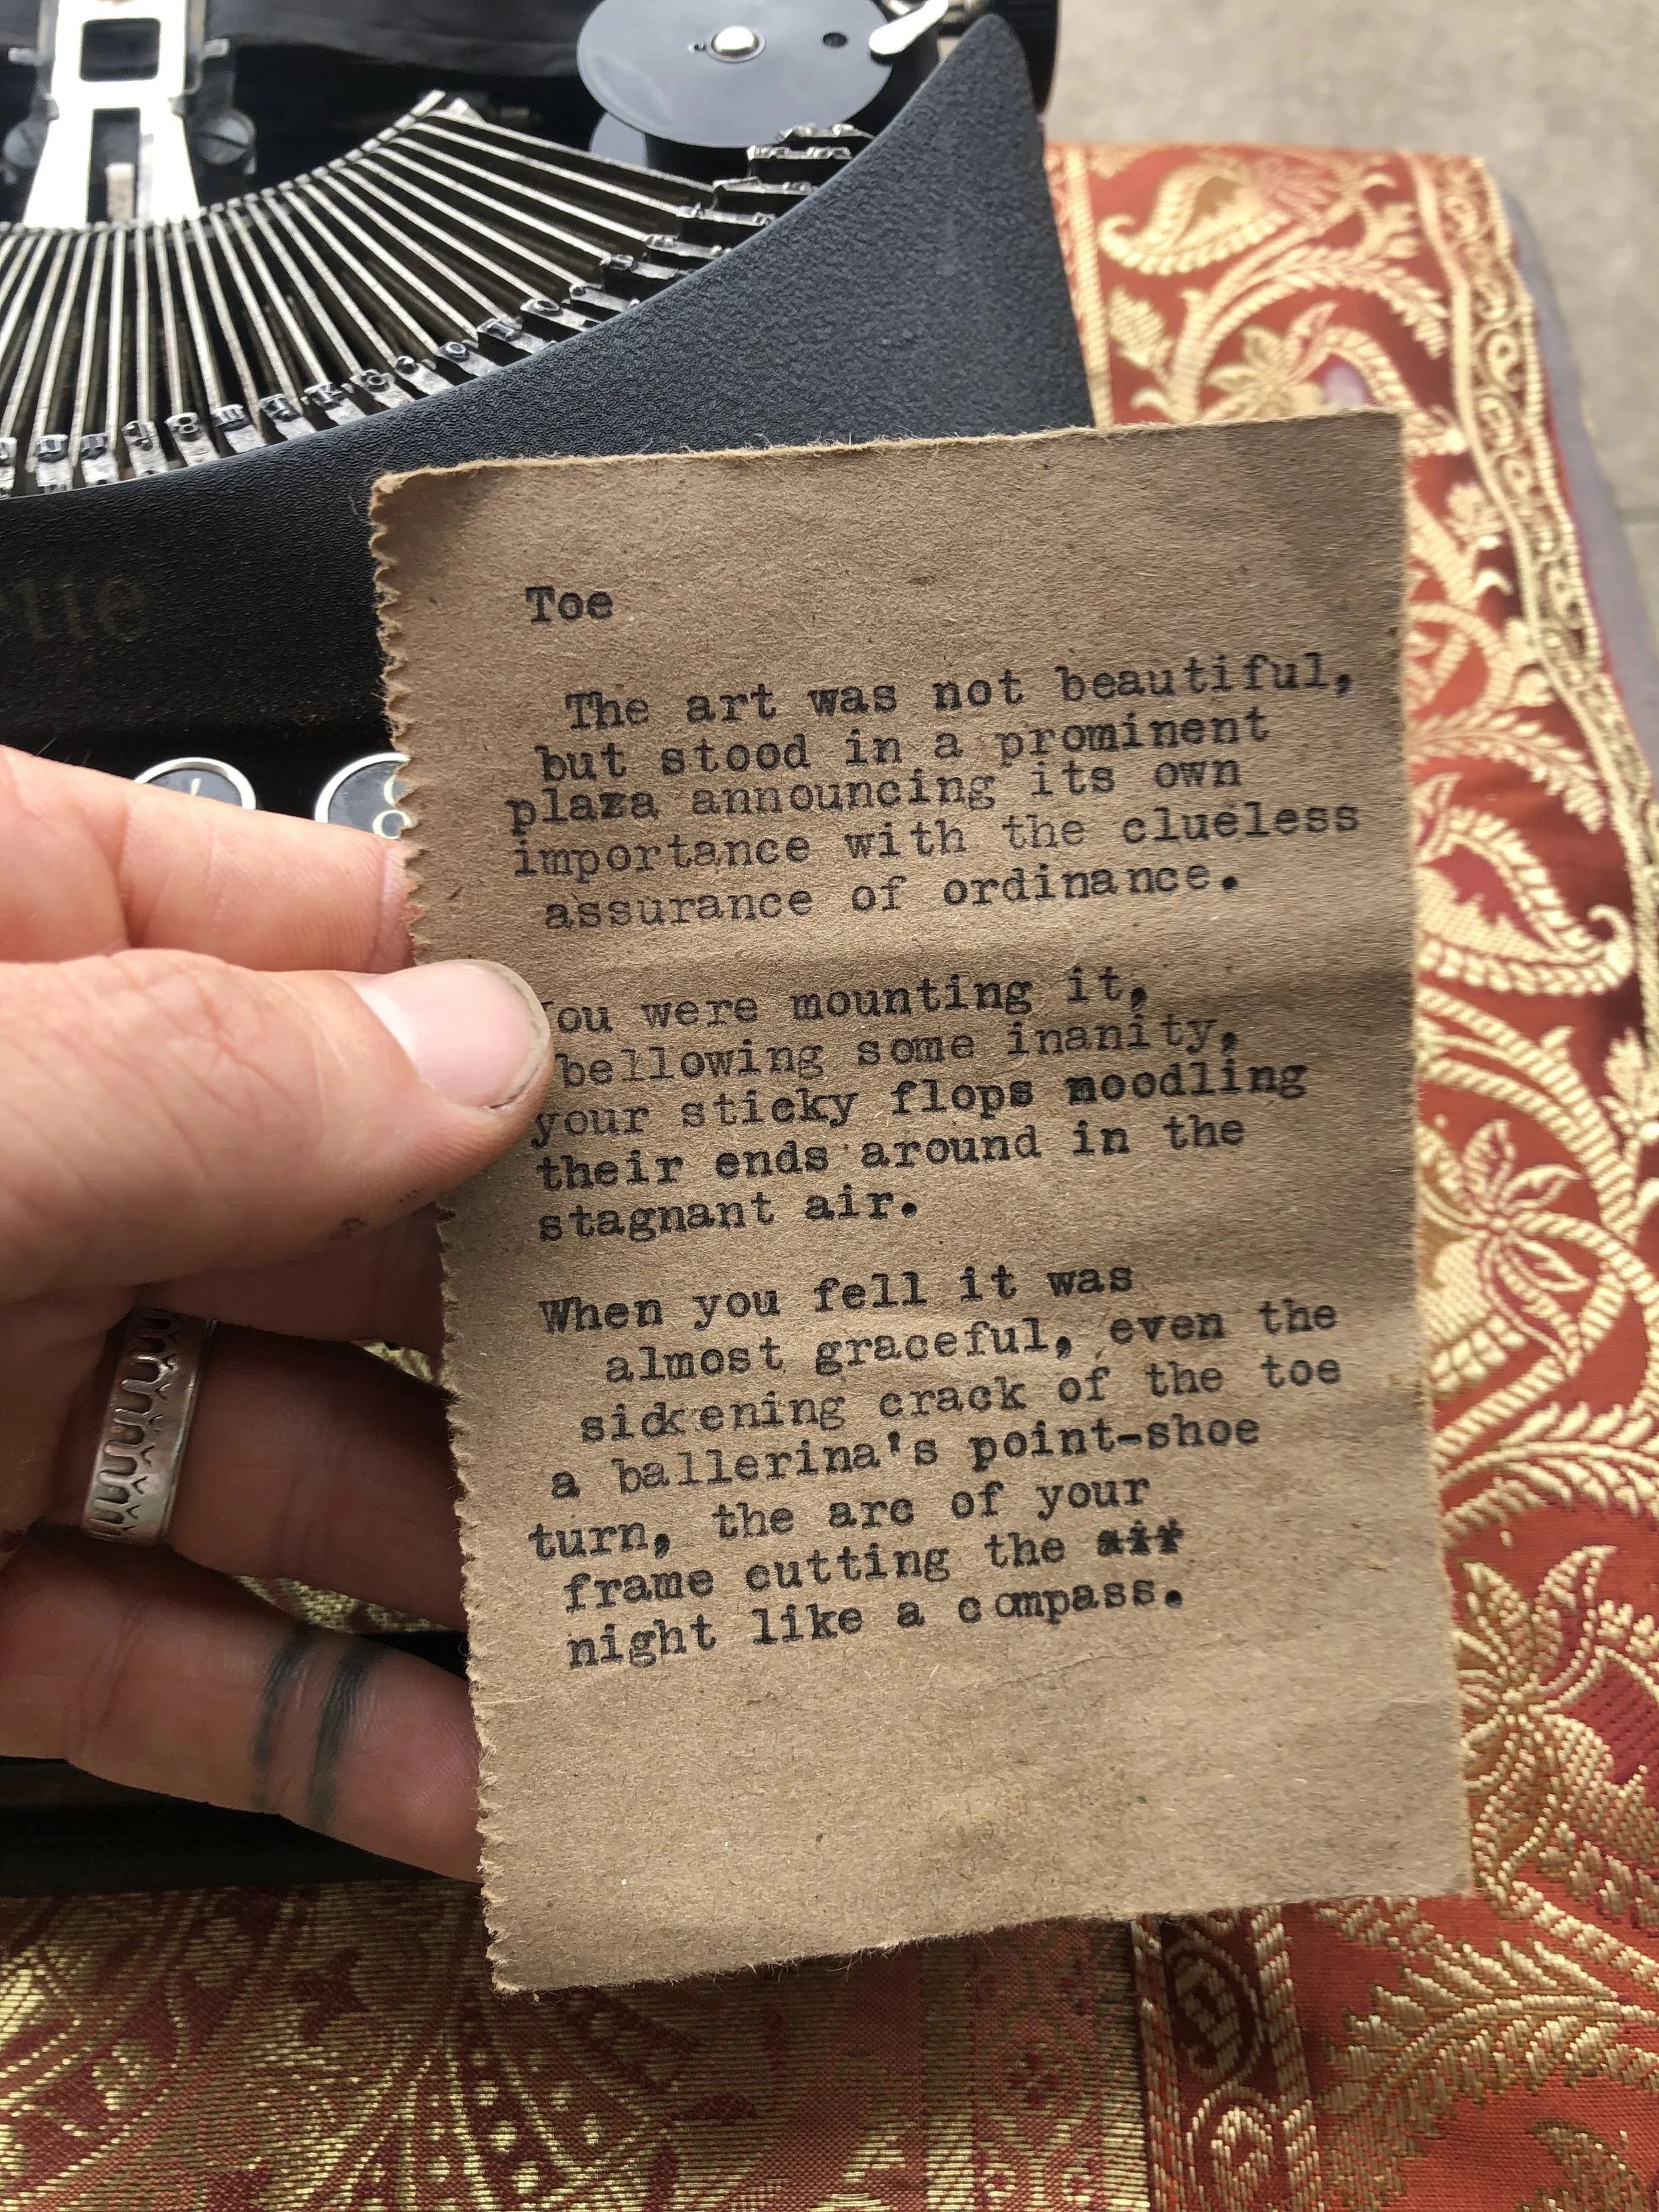 Toe
The art was not beautiful,
but stood in a prominent
plaza announcing its own
importance with the clueless
assurance of ordinance.
You were mounting it,
bellowing some inanity,
your sticky flops noodling
their ends around in the
stagnant air.
When you fell it was
almost graceful, even the
sickening crack of the toe
a ballerina's point-shoe
turn, the arc of your
frame cutting the air
night like a compass.